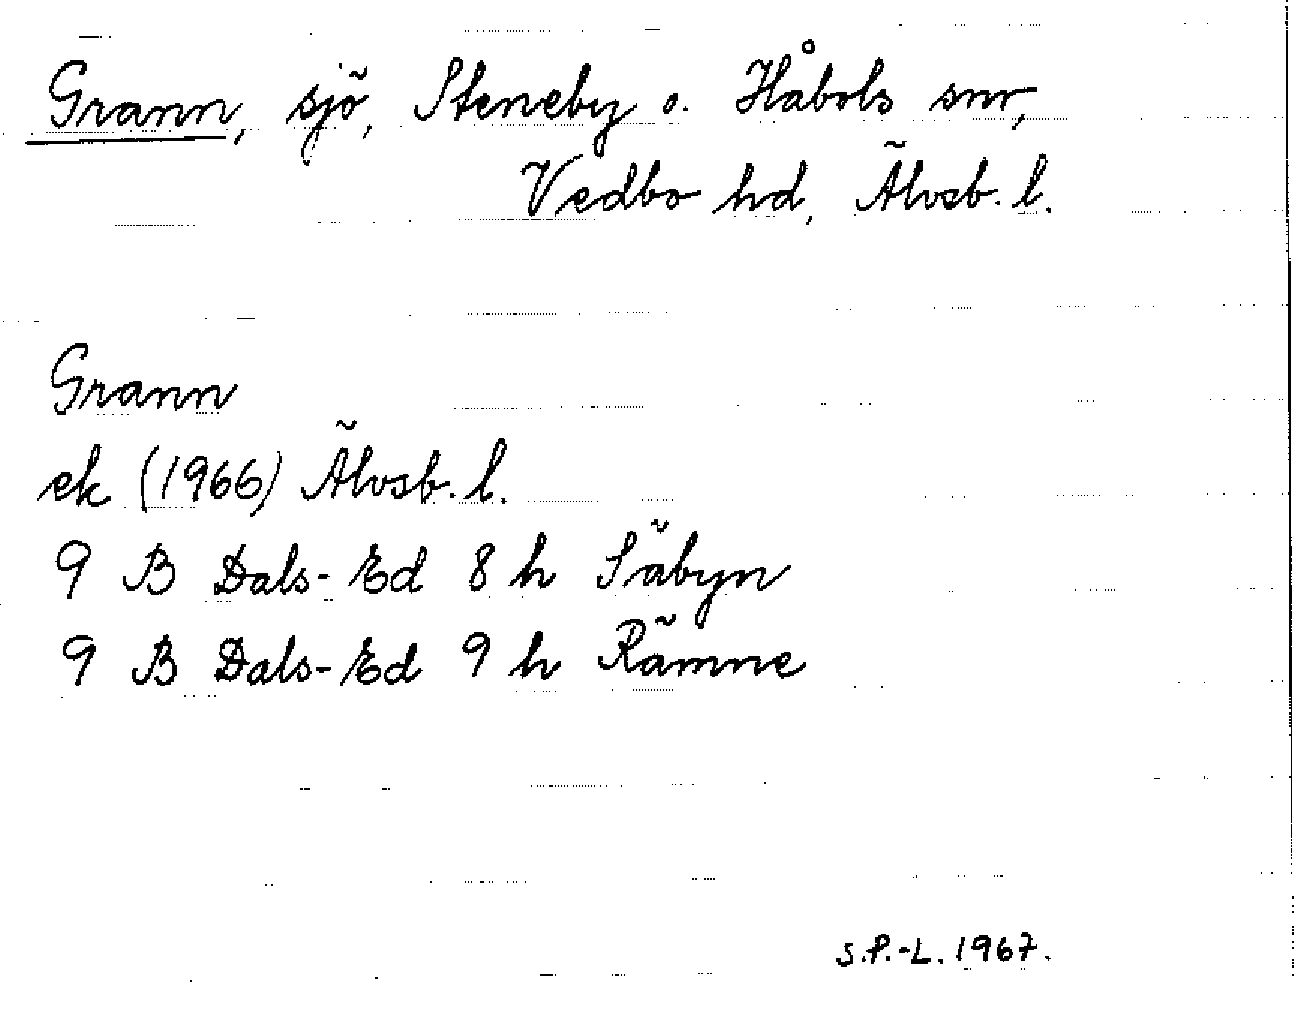 Grann, sjö, Steneby o. Håbols snr,
Vedbo hd, Älvsb. l.
Grann
ek (1966) Älvsb. l.
9 B Dals-Ed 8 h Säbyn
9 B Dals-Ed 9 h Rämne
S.P.-L. 1967.